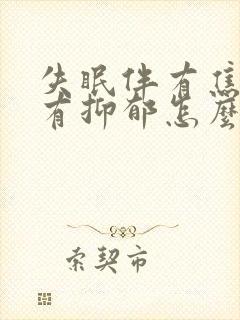 失眠伴有焦
有抑郁怎麼
索契市